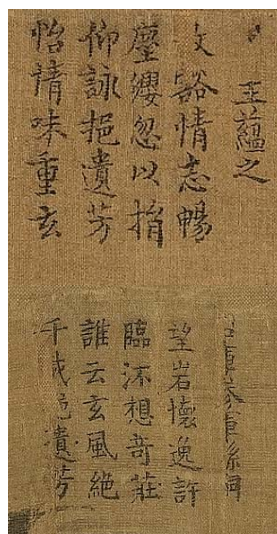 王蘊之
豁情志暢
塵纓忽以捐
仰詠挹遺芳
怡情味重玄
軍參軍孫嗣
望岩懷逸許
臨流想奇莊
誰云玄風絕
千載挹遺芳